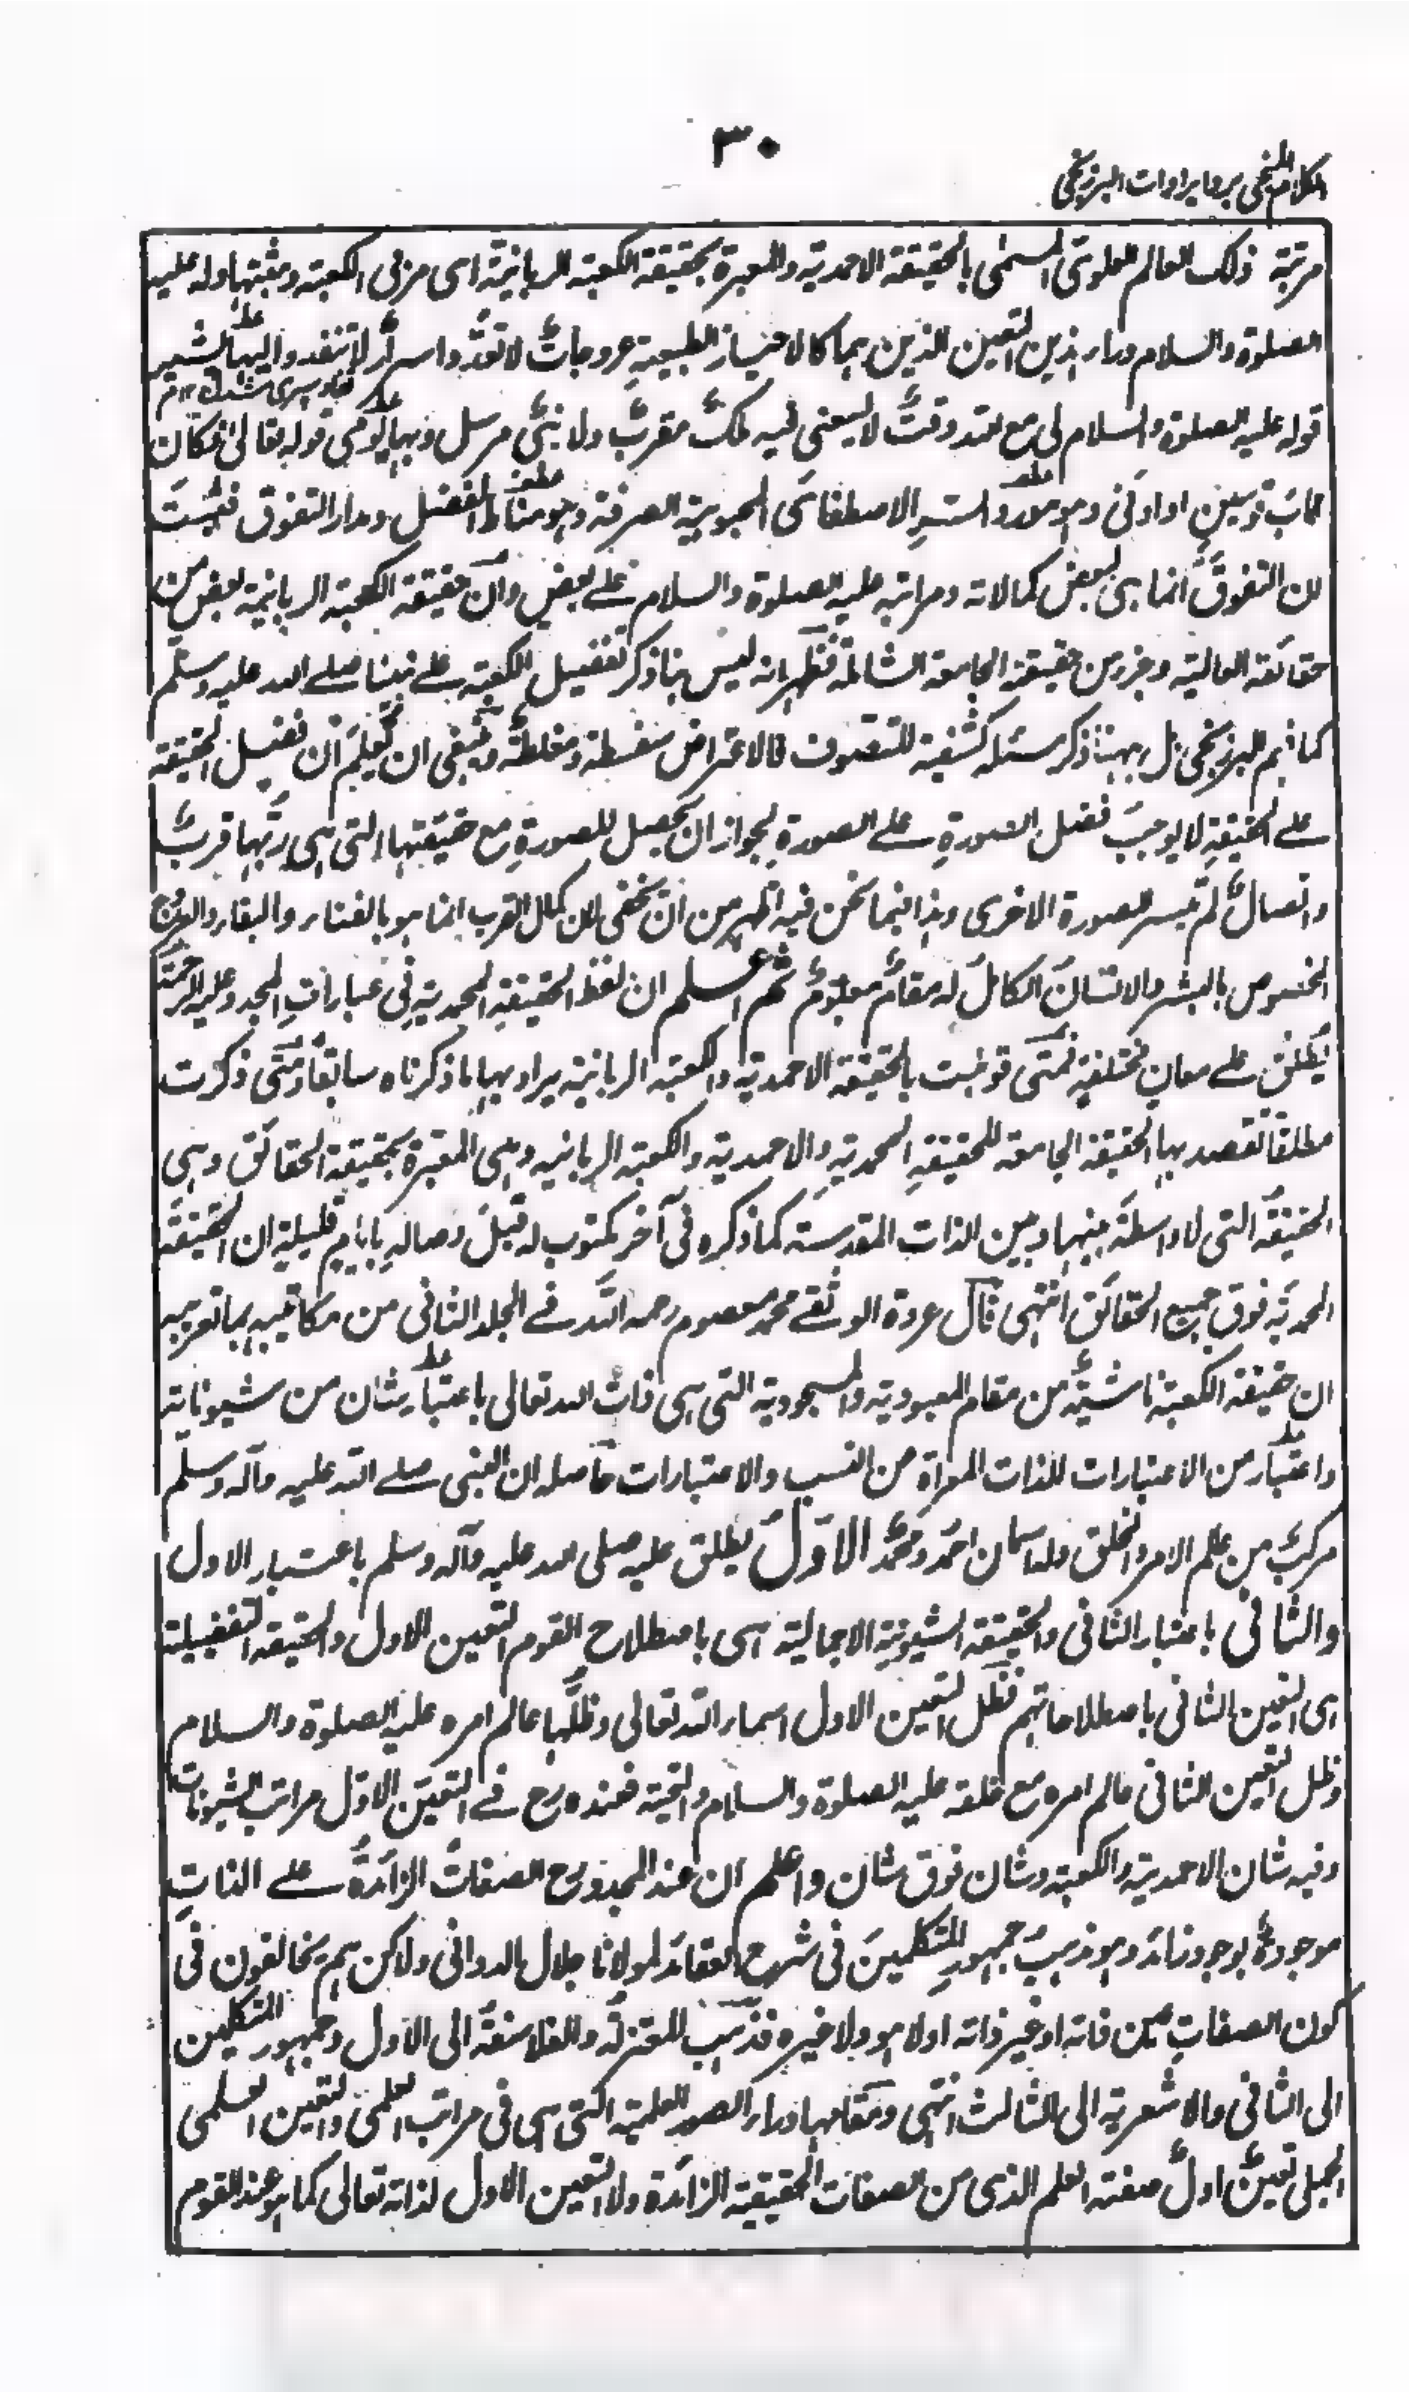 ٣٠
الكلام المنجى برد ايرادات البرزنجى
مرتبة ذلك العالم العلوى المسمى بالحقيقة الاحمدية والمعبرة بحقيقة الكعبة الربانية اى مربى الكعبة ومثبتها وله عليه
الصلوة والسلام وراء هذين التعين الذين هما كالاحياز الطبيعية عروجاتٌ لا تعدّ واسرارٌ لا تنفد واليها يشير
قوله عليه الصلوة والسلام لى مع الله وقتٌ لا يسعنى فيه ملكٌ مقربٌ ولا نبىٌّ مرسل وبها يومى قوله تعالى فكان
قاب قوسين او ادنى وهو مورد السرِ الاصطفائى المحبوبية الصرفة وهو مناط الفضل ومدار التفوق فليست
لان التفوق انما هى لبعض كمالاته ومراتبه عليه الصلوة والسلام على بعض وان حقيقة الكعبة الربانية بعض من
حقائقه العالية وجزء من حقيقته الجامعة الشاملة فظهر انه ليس هنا ذكر تفضيل الكعبة على نبينا صلے الله عليه وسلم
كما فهم البرزنجى بل ههنا ذكر مسئلة كشفية للتصوف فالاعتراض سفسطة ومغلطة وينبغى ان يعلم ان فضل الحقيقة
على الحقيقةِ لا يوجبُ فضل الصورةِ على الصورةِ لجواز ان يحصل للصورةِ مع حقيقتها التى هى ربّها قربٌ
واتصالٌ لم يتيسر للصورة الاخرى وهذا فيما نحن فيه اظهر من ان يخفى لان كمال القرب انما هو بالفناء والبقاء والعروج
المخصوص بالبشر والانسان الكامل له مقامٌ معلومٌ ثم اعلم ان لفظ الحقيقة المحمدية فى عبارات المجدد عليه الرحمة
يطلق على معانٍ مختلفة فمتى قوبلت بالحقيقة الاحمدية والكعبة الربانية يراد بها ما ذكرناه سابقاً ومتى ذكرت
مطلقا تقصد بها الحقيقة الجامعة للحقيقةِ المحمديةِ والاحمدية والكعبة الربانية وهى المعبرة بحقيقة الحقائق وهى
الحقيقة التى لا واسطة بينها وبين الذات المقدسة كما ذكره فى آخر مكتوب له قبل وصالهِ بايام قليلة ان الحقيقة
المحمدية فوق جميع الحقائق انتهى قال عروة الوثقے محمد معصوم رحمه الله فے المجلد الثانى من مكاتيبه بما تعريبه
ان حقيقة الكعبة ناشية من مقام المعبودية والمسجودية التى هى ذات الله تعالى باعتبار شان من شيوناته
واعتبار من الاعتبارات للذات المعراة من النسب والاعتبارات حاصله ان النبى صلے الله عليه وآله وسلم
مركبٌ من عالم الامر والخلق وله اسمان احمد ومحمد الاول يطلق عليه صلى الله عليه وآله وسلم باعتبار الاول
والثانى باعتبار الثانى والحقيقة الشيونية الاجمالية اى باصطلاح القوم التعين الاول والحقيقة التفضيلية
اى التعين الثانى باصطلاحاتهم فظل التعين الاول اسماء الله تعالى وظلها عالم امره عليه الصلوة والسلام
وظل التعين الثانى عالم امره مع خلقه عليه الصلوة والسلام والتحية فعنده رح فے التعين الاول مراتب الشيونات
وفيه شان الاحمدية والكعبة وشان فوق شان واعلم ان عند المجدد رح الصفات الزائدةُ على الذاتِ
موجودةٌ بوجود زائد وهو مذهب جمهور المتكلمين فى شرح العقائد لمولانا جلال الدوانى ولاكن هم يخالفون فى
كون الصفات عين ذاته او غير ذاته او لا هو ولا غيره فذهب المعتزلة والفلاسفة الى الاول وجمهور المتكلمين
الى الثانى والاشعرية الى الثالث انتهى ومقامها وراء الصور العلمية التى هى فى مراتب العلمى والتعين العلمى
الجملى تعينٌ اولٌ صفته العلم الذى من الصفات الحقيقية الزائدة ولا التعين الاول لذاته تعالى كما هو عند القوم